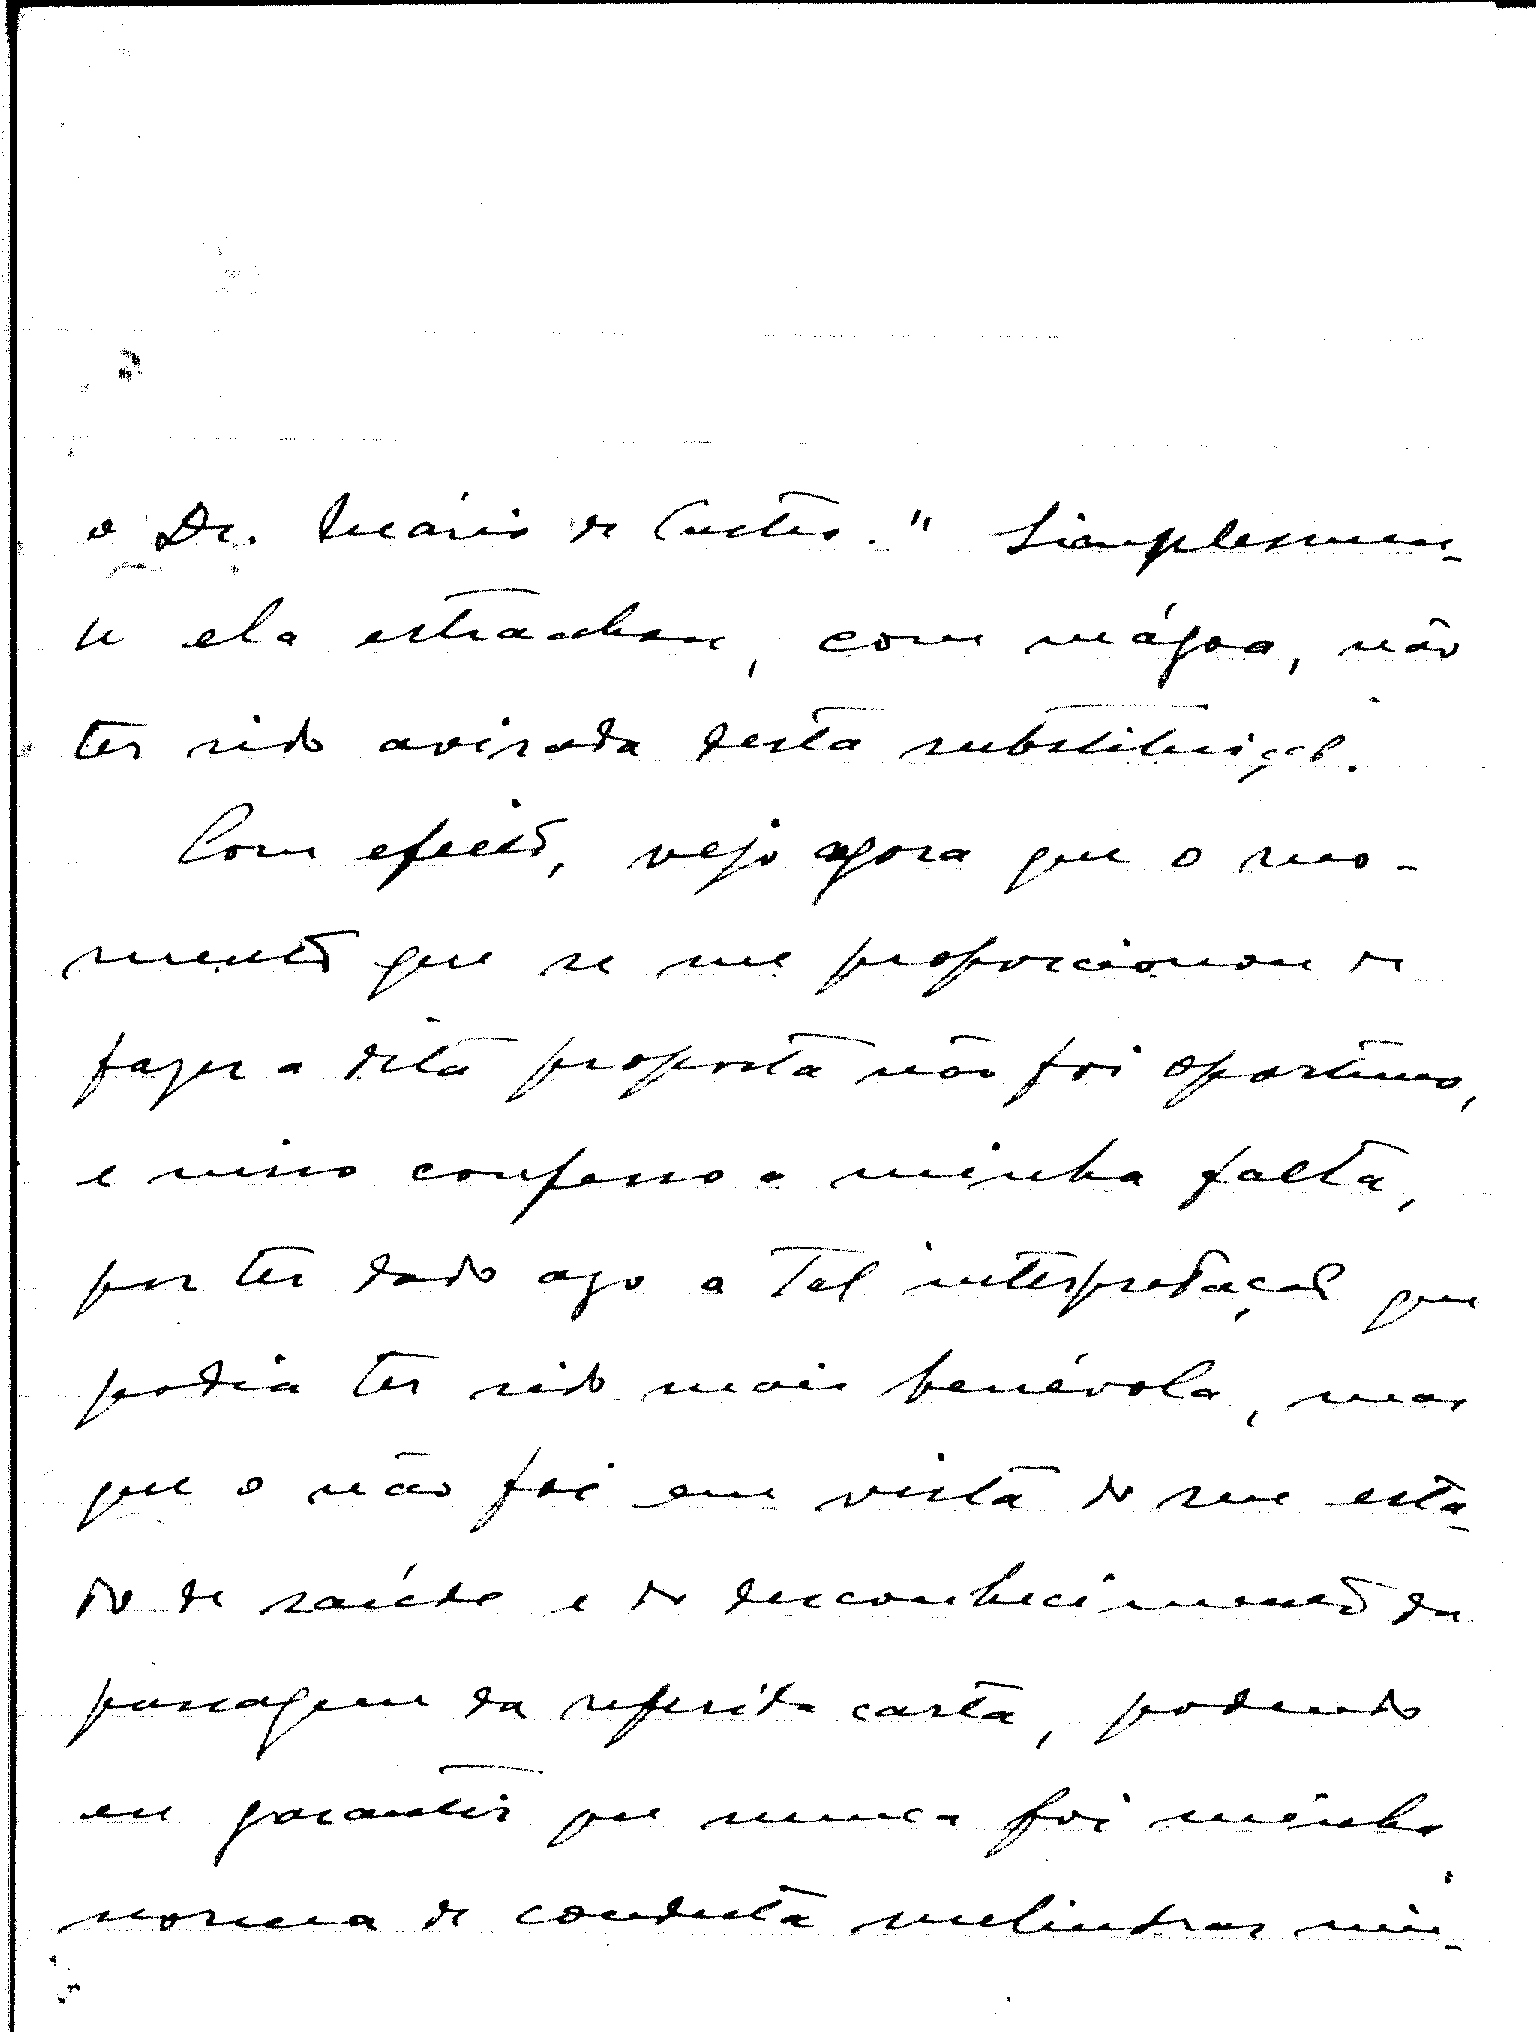 o Dr. Mário de Castro." Simplesmen-
te ela estranhou, com mágoa, não
ter sido avisada desta substituição.
Com efeito, vejo agora que o mo-
mento que se me proporcionou de
fazer a dita proposta não foi oportuno,
e nisso confesso a minha falta,
por ter dado azo a tal interpretação que
podia ter sido mais benévola, mas
que o não foi em vista do seu esta-
do de saúde e do desconhecimento da
passagem da referida carta, podendo
eu garantir que nunca foi minha
norma de conduta melindrar nin-